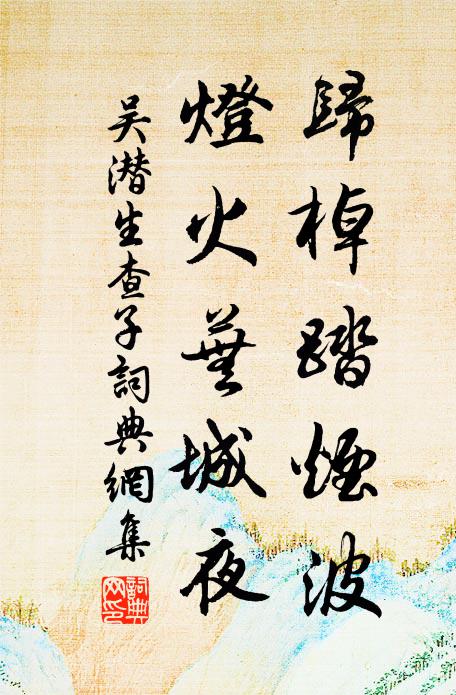 歸棹踏煙波
燈火蕪城夜
吴潜生查子詞典網集
詞典